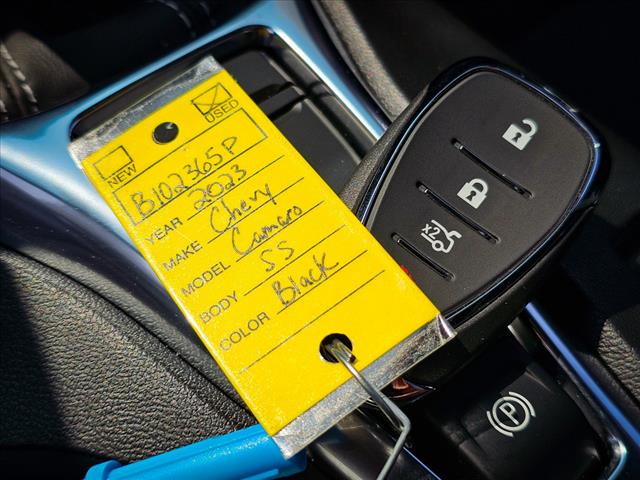 NEW USED
B102365P
YEAR 2023
MAKE Chevy
MODEL Camaro
BODY SS
COLOR Black
X2
P